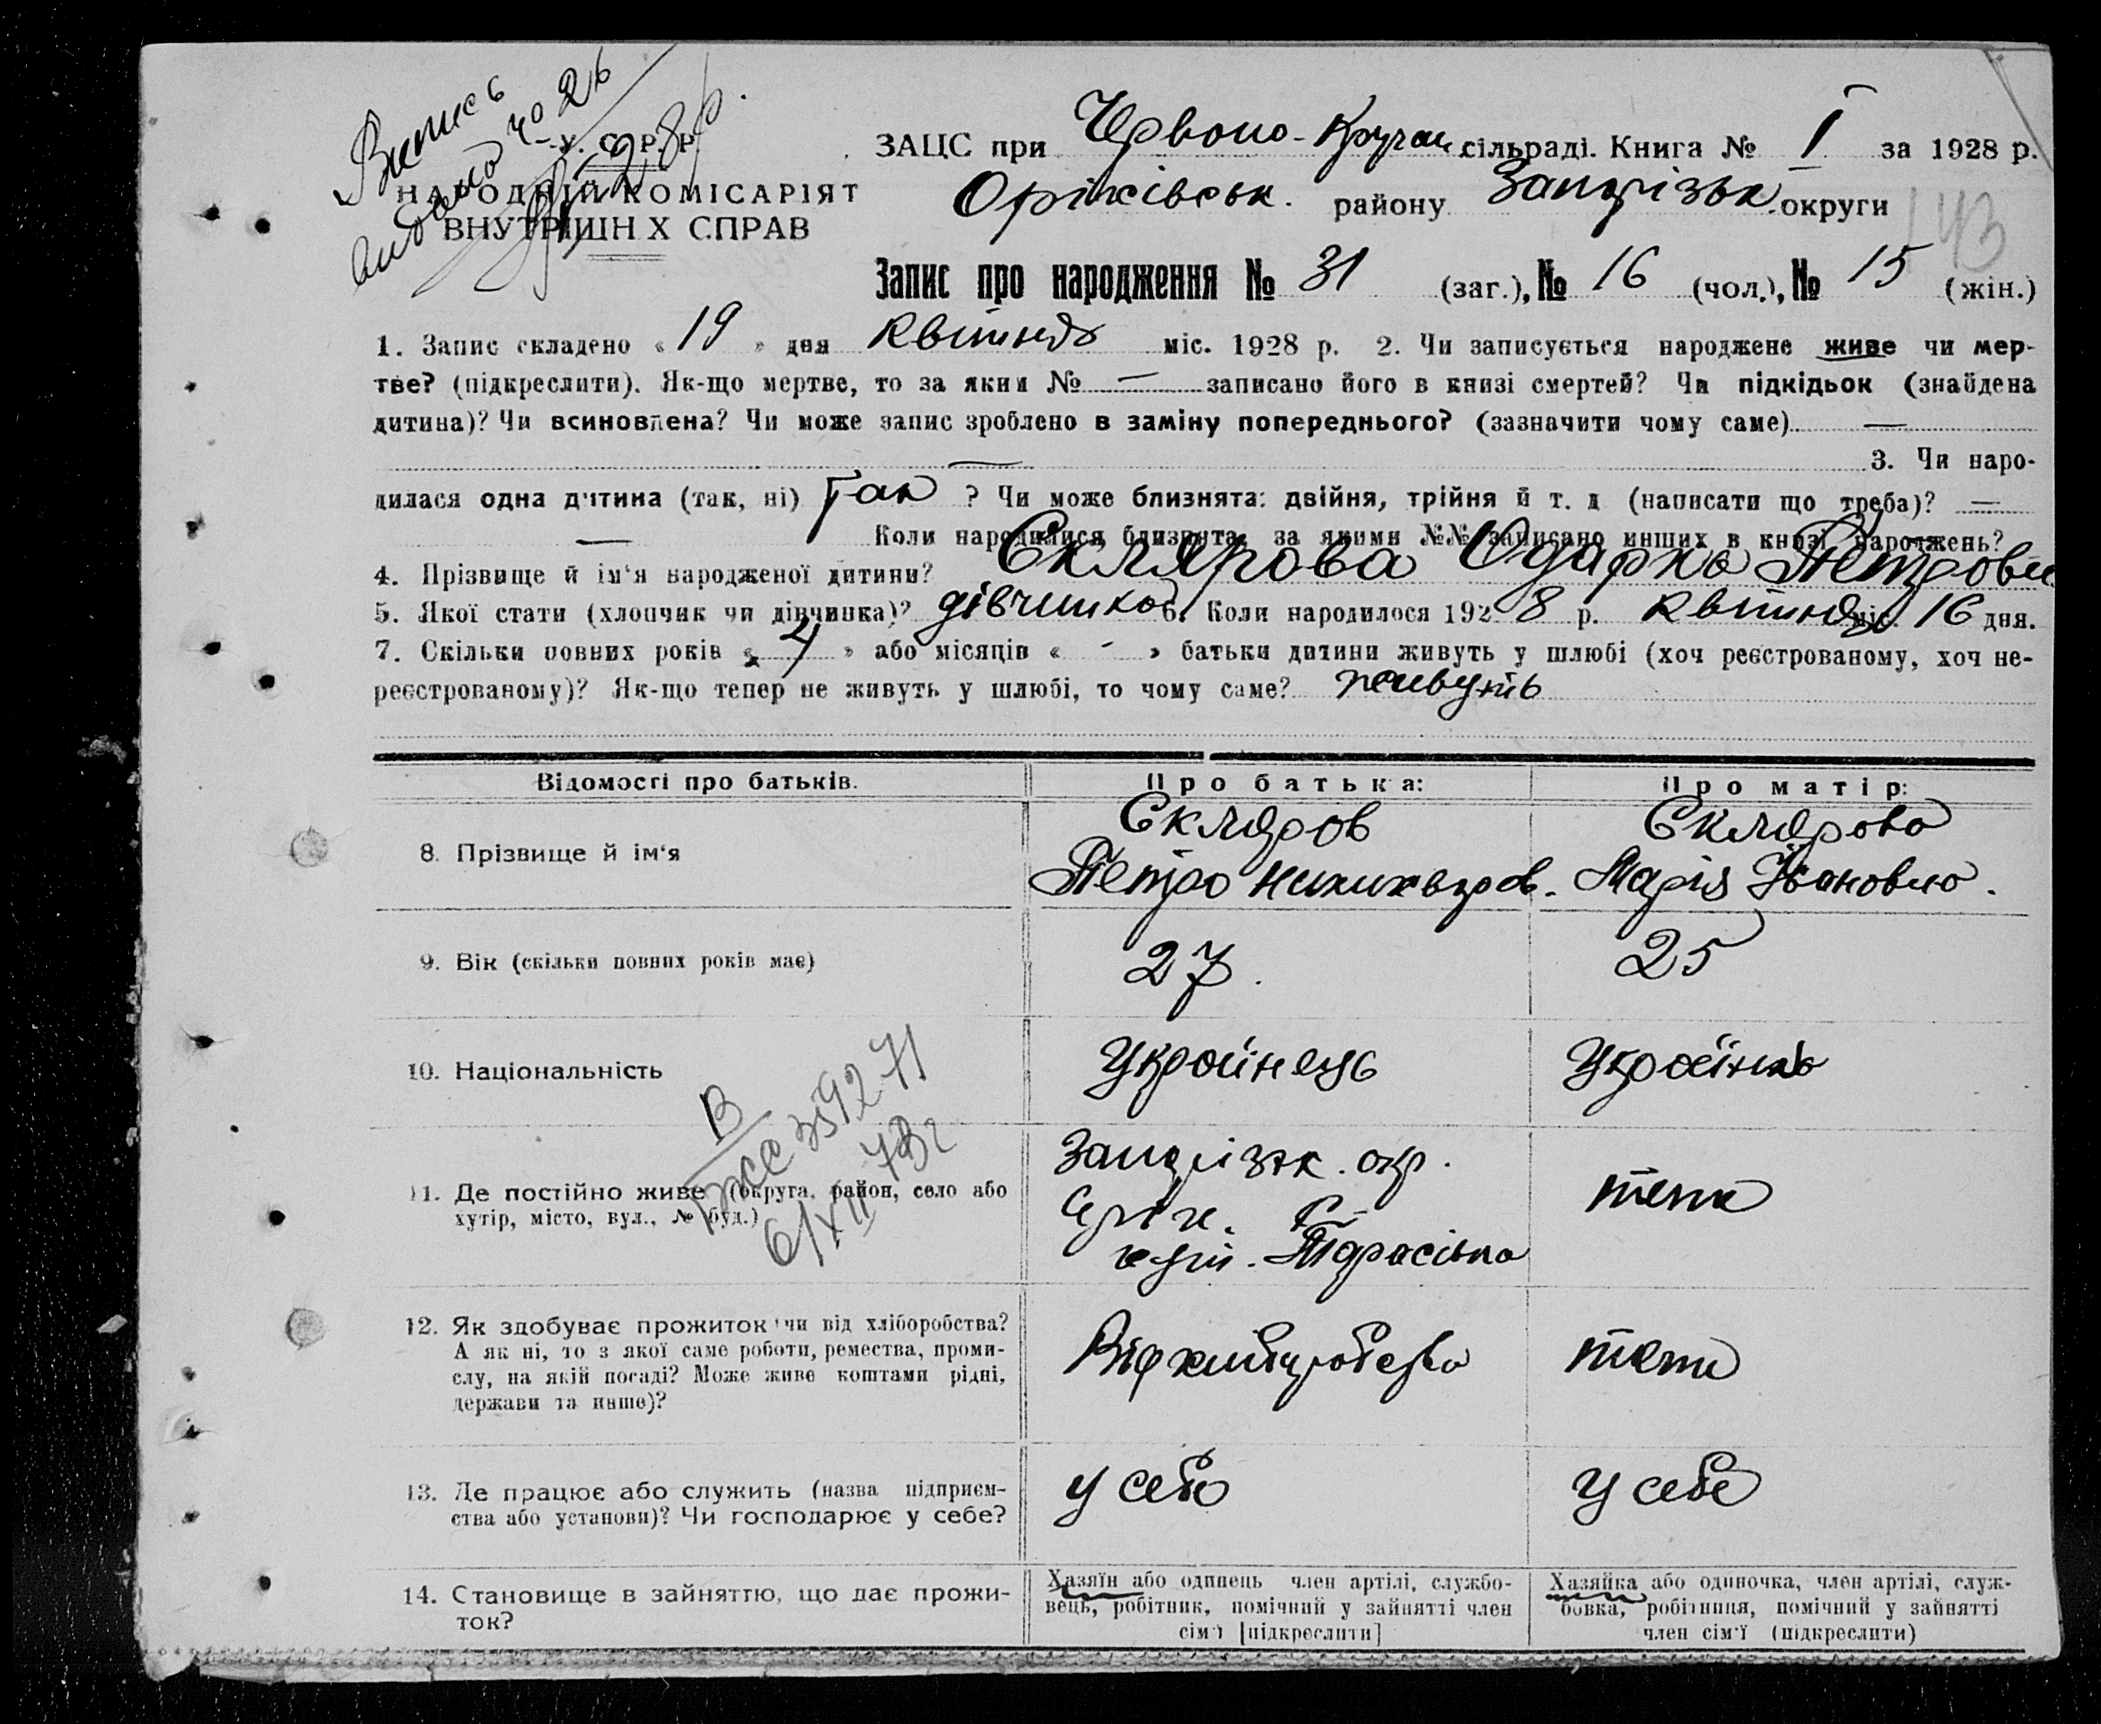 Витись
видано № 26
У. С. Р. Р.
НАРОДНІЙ КОМІСАРІЯТ
ВНУТРІШН Х СПРАВ
28 р.
ЗАЦС при Червоно-Кручан. сільраді. Книга № I за 1928 р.
Оріхівськ. району Запорізьк. округи
143
Запис про народження № 31 (заг.), № 16 (чол.), № 15 (жін.)
1. Запис складено « 19 » дня квітня міс. 1928 р. 2. Чи записується народжене живе чи мер-
тве? (підкреслити). Як-що мертве, то за яким № — записано його в книзі смертей? Чи підкідьок (знайдена
дитина)? Чи всиновлена? Чи може запис зроблено в заміну попереднього? (зазначити чому саме) —
— 3. Чи наро-
дилася одна дитина (так, ні) Так ? Чи може близнята: двійня, трійня й т. д (написати що треба)? —
— Коли народилися близнята, за якими №№ записано инших в книзі народжень?
4. Прізвище й ім'я народженої дитини? Склярова Одарка Петровн
5. Якої стати (хлопчик чи дівчинка)? дівчинка 6. Коли народилося 1928 р. квітня міс. 16 дня.
7. Скільки повних років « 4 » або місяців « - » батьки дитини живуть у шлюбі (хоч реєстрованому, хоч не-
реєстрованому)? Як-що тепер не живуть у шлюбі, то чому саме? живуть
Відомості про батьків. Про батька: Про матір:
8. Прізвище й ім'я
Скляров
Петро Никихвров.
Склярова
Марія Івановна.
9. Вік (скільки повних років має) 27. 25
10. Національність Украйнець Українка
В
359271
6/XII 73г
11. Де постійно живе (округа, район, село або
хутір, місто, вул., № буд.)
Запорізьк. окр.
Оріх. р.
хут. Тарасівка
теж
12. Як здобуває прожиток чи від хліборобства?
А як ні, то з якої саме роботи, ремества, проми-
слу, на якій посаді? Може живе коштами рідні,
держави та инше)?
Від хліборобства
теж
13. Де працює або служить (назва підприєм-
ства або установи)? Чи господарює у себе?
у себе
у себе
14. Становище в зайняттю, що дає прожи-
ток?
Хазяїн або одинець член артілі, службо-
вець, робітник, помічний у зайнятті член
сім'ї [підкреслити]
Хазяйка або одиночка, член артілі, служ-
бовка, робітниця, помічний у зайнятті
член сім'ї (підкреслити)